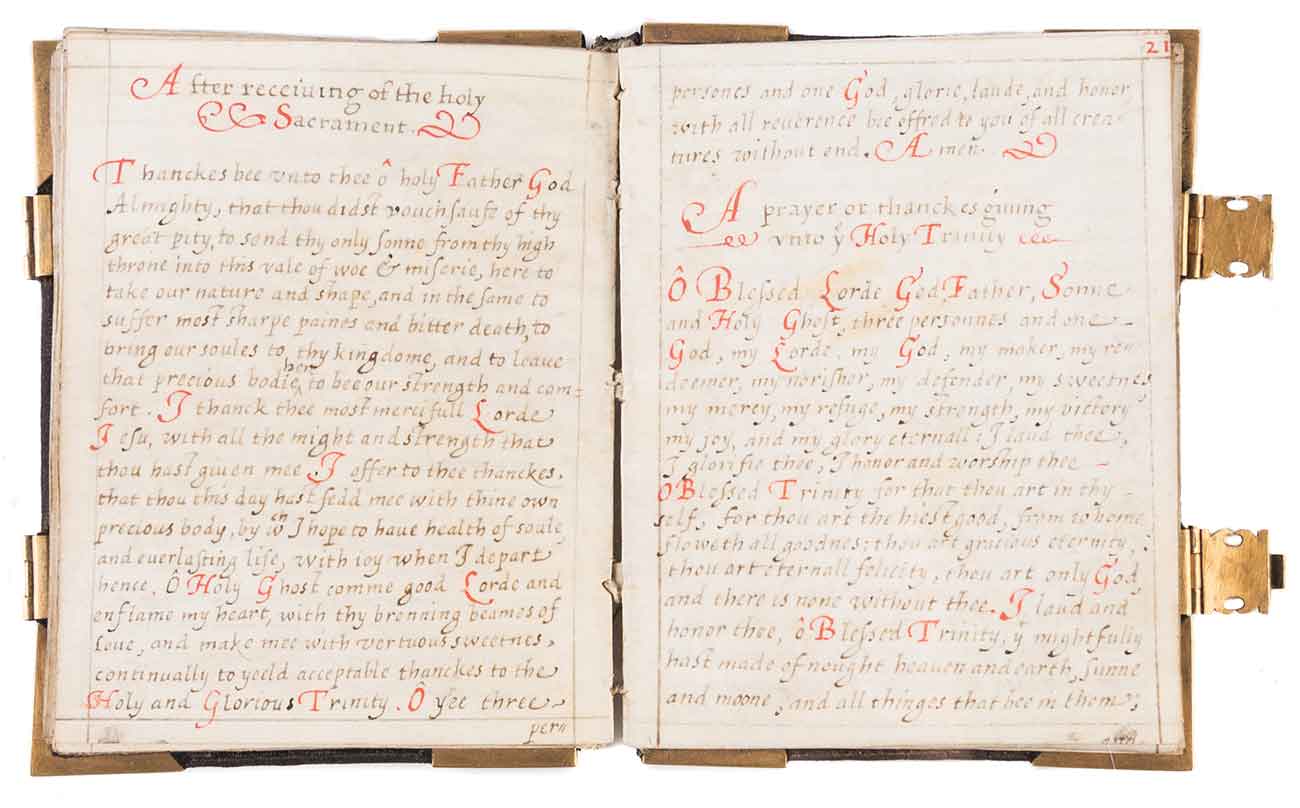 After receiuing of the holy
Sacrament.
Thanckes bee vnto thee ô holy Father God
Almighty, that thou didst vouchsaufe of thy
great pity, to send thy only sonne from thy high
throne into this vale of woe & miserie, here to
take our nature and shape, and in the same to
suffer most sharpe paines and bitter death, to
bring our soules to thy kingdome, and to leaue
that precious bodie, here to bee our strength and com=
fort. I thanck thee most mercifull Lorde
Iesu, with all the might and strength that
thou hast giuen mee. I offer to thee thanckes,
that thou this day hast fedd mee with thine own
precious body, by wch I hope to haue health of soule
and euerlasting life, with ioy when I depart
hence. Ô Holy Ghost comme good Lorde and
enflame my heart, with thy brenning beames of
loue, and make mee with vertuous sweetnes,
continually to yoeld acceptable thanckes to the
Holy and Glorious Trinity. Ô yee three
per=
21
persones and one God, glorie, laude, and honor
with all reuerence bee offred to you of all crea=
tures without end. Amen.
A prayer or thanckes giuing
vnto ÿ Holy Trinity
Ô Blessed Lorde God, Father, Sonne
and Holy Ghost, three personnes and one
God, my Lorde, my God, my maker, my re=
deemer, my norisher, my defender, my sweetnes
my mercy, my refuge, my strength, my victory
my joy, and my glory eternall: I laud thee,
I glorifie thee, I honor and worship thee
ô Blessed Trinity for that thou art in thy
self, for thou art the hiest good, from whome
floweth all goodnes: thou art gracious eternity,
thou art eternall felicity, thou art only God
and there is none without thee. I laud and
honor thee, ô Blessed Trinity, ÿ mightfully
hast made of nought heauen and earth, sunne
and moone, and all thinges that bee in them,